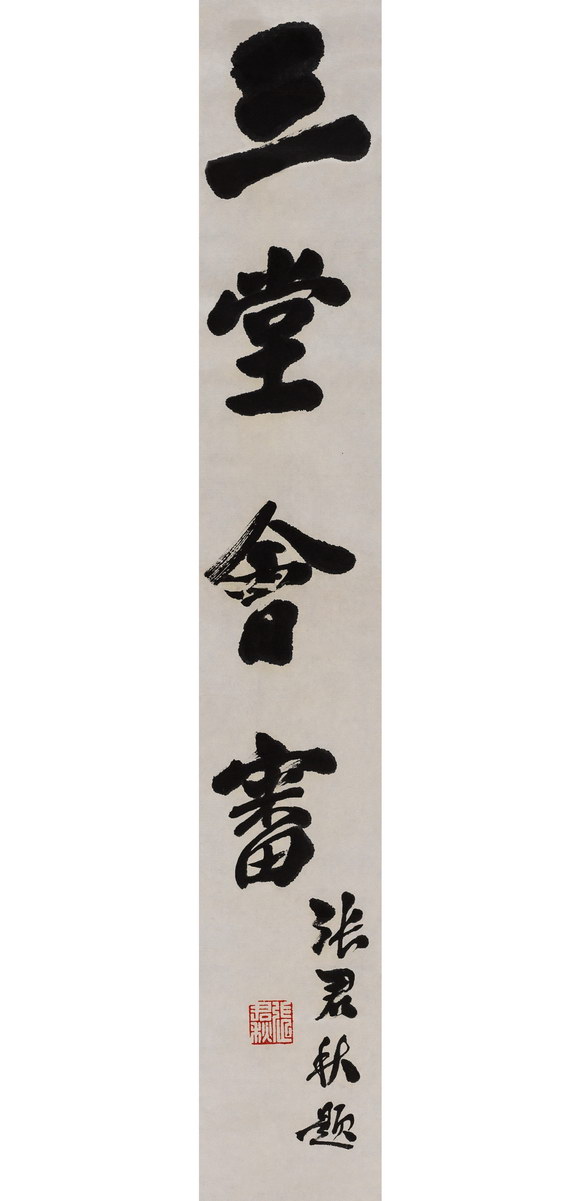 三堂會審
张君秋题
張君秋